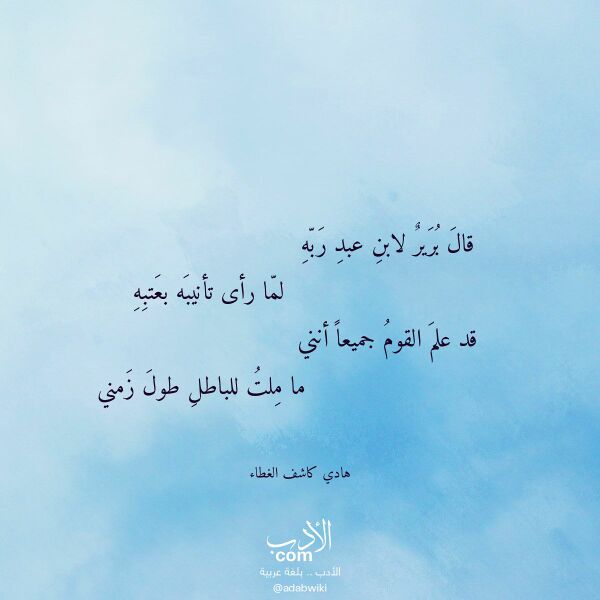 قالَ بُرَيرٌ لابنِ عبدِ رَبّهِ
لمّا رأى تأنيبَه بعَتبِهِ
قد علمَ القومُ جميعاً أنني
ما مِلتُ للباطلِ طولَ زَمني
هادي كاشف الغطاء
الأدب
com
الأدب .. بلغة عربية
@adabwiki